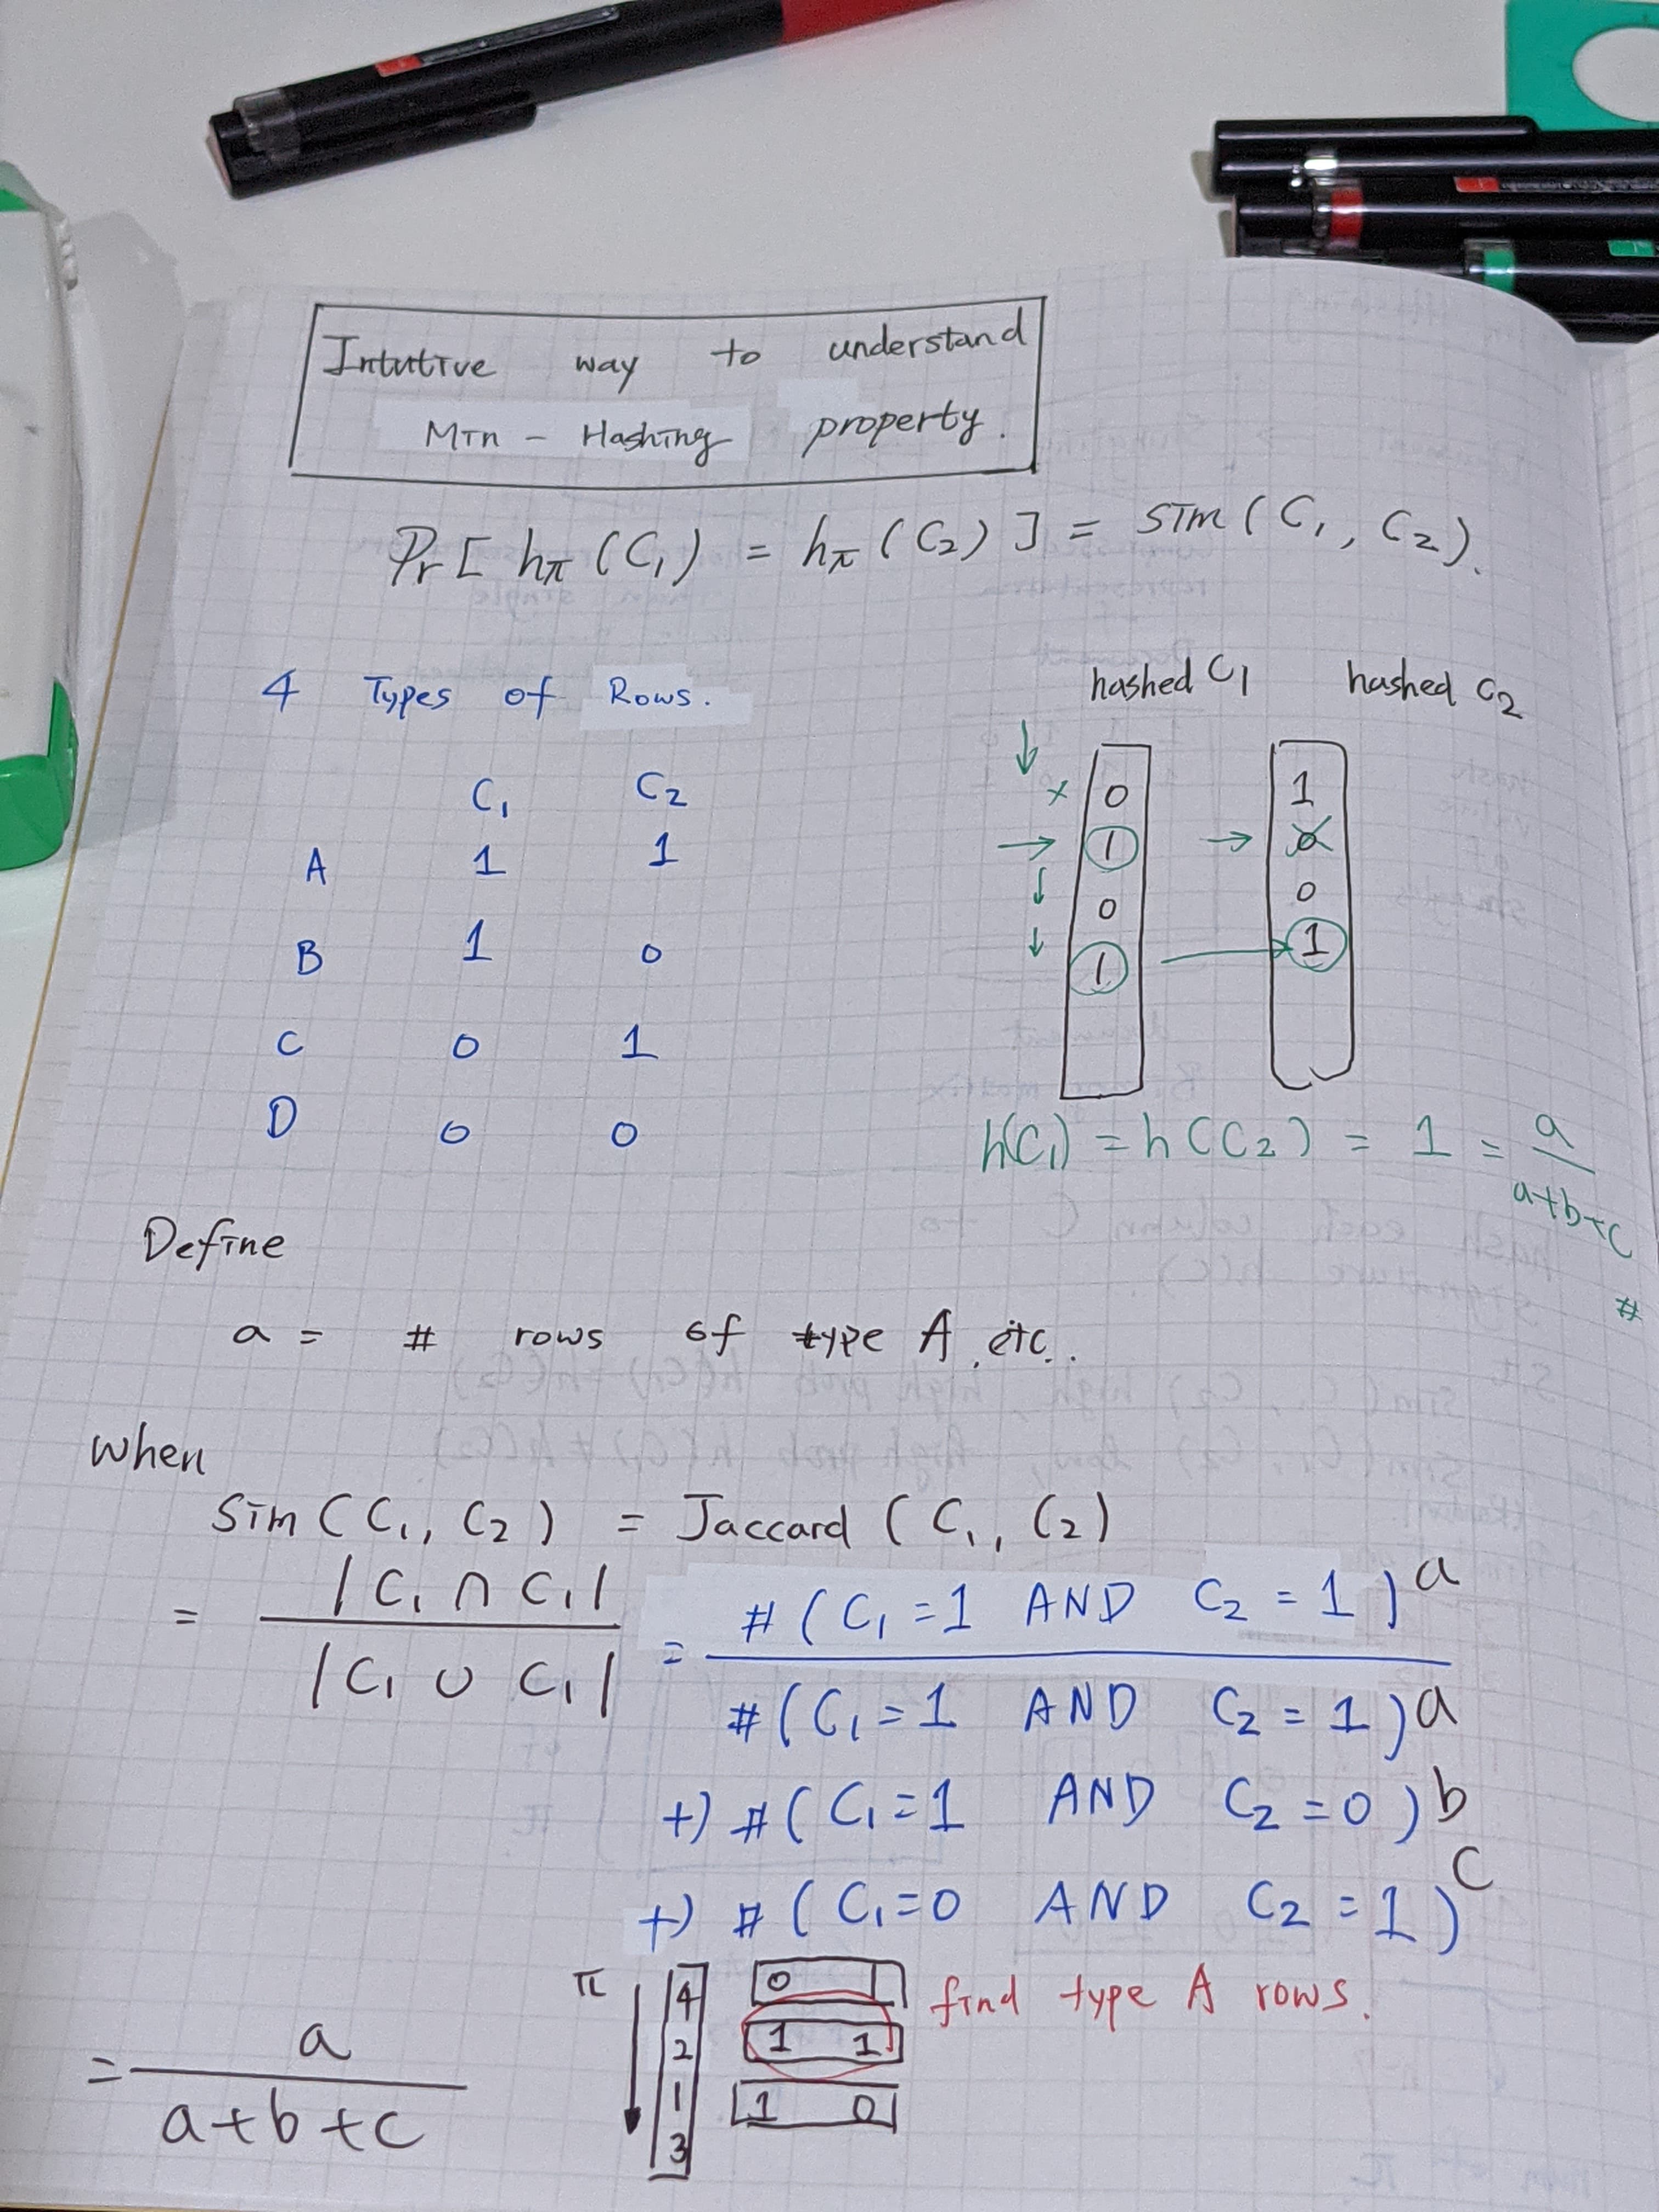 Intutive way to understand
Min - Hashing property.
Pr[ hπ (C₁) = hπ (C₂) ] = sim ( C₁, C₂).
4 Types of Rows.
C₁ C₂
A 1 1
B 1 0
C 0 1
D 0 0
hashed C1 hashed C2
x 0 1
→ 1 → 0
0 0
1 1
h(C₁) = h(C₂) = 1 = a
a+b+c
#
Define
a = # rows of type A, etc.
when
Sim ( C₁, C₂ ) = Jaccard ( C₁, C₂)
= |C₁ ∩ C₁| = # ( C₁ = 1 AND C₂ = 1 ) a
|C₁ ∪ C₁| # ( C₁ = 1 AND C₂ = 1 ) a
+) # ( C₁ = 1 AND C₂ = 0 ) b
+) # ( C₁ = 0 AND C₂ = 1 ) C
π 4 0 find type A rows.
2 1 1
1 1 0
3
= a
a+b+c